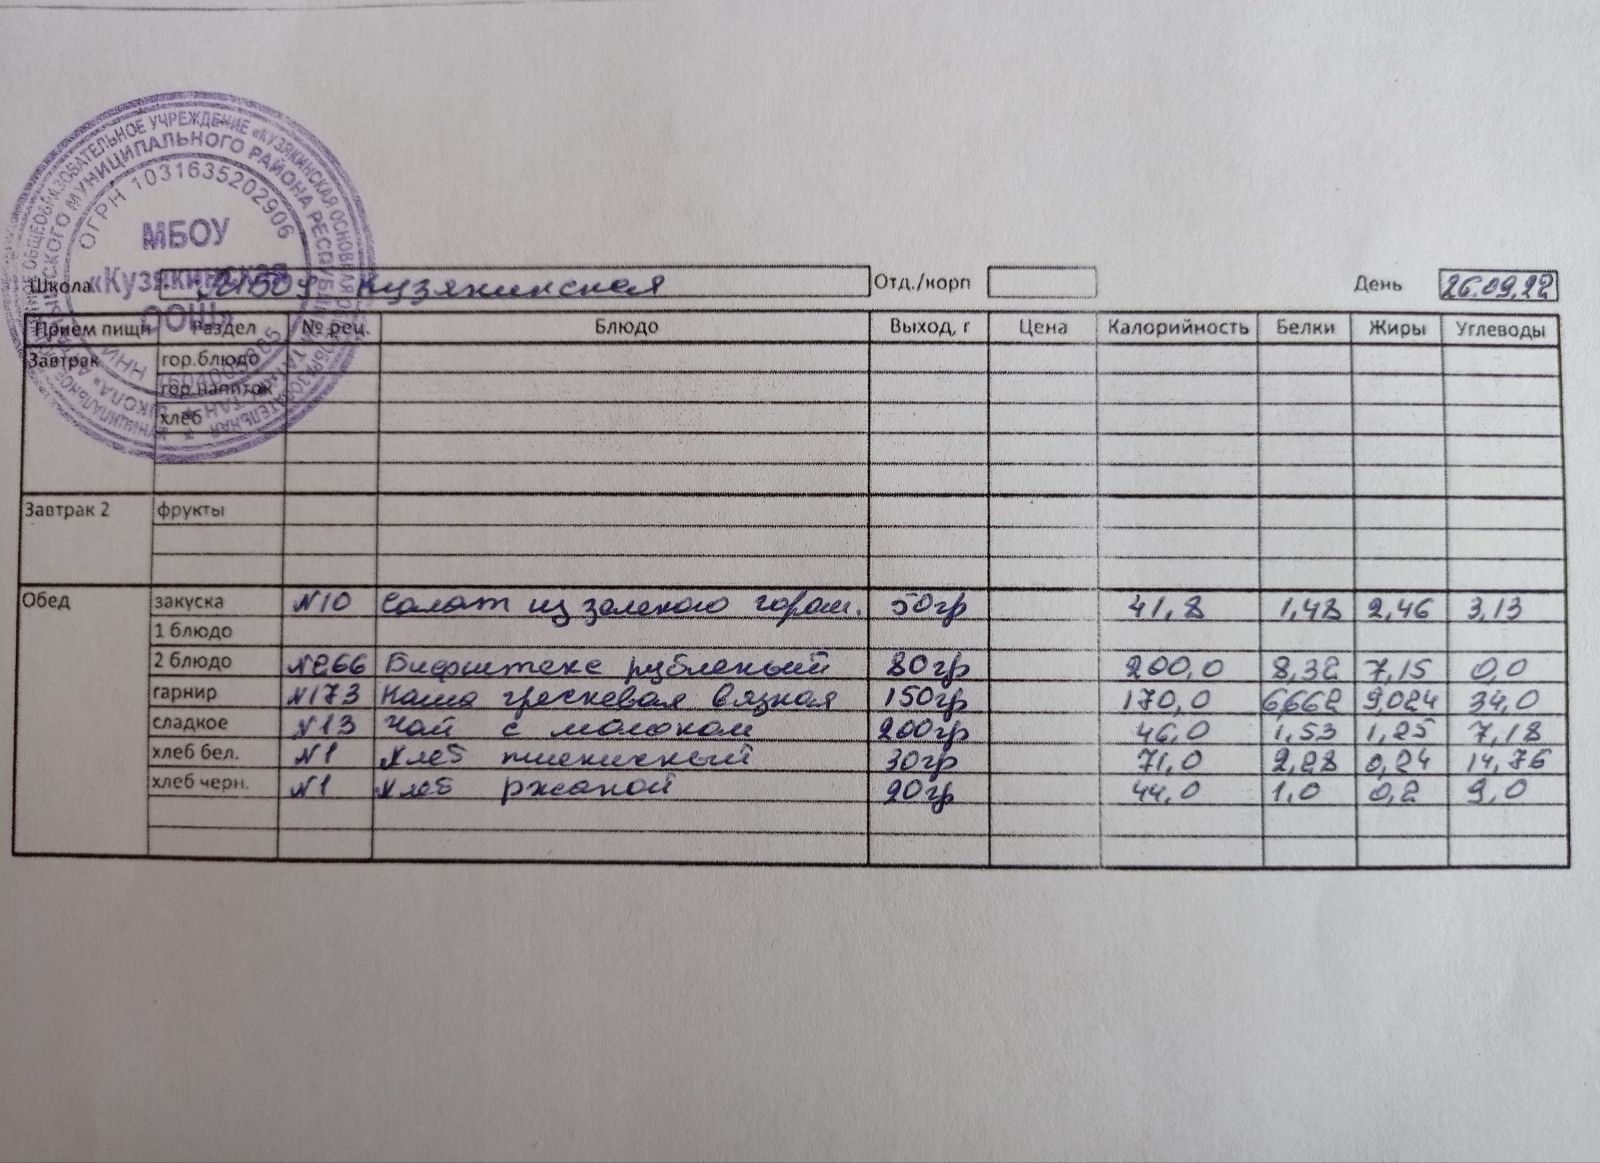 МУНИЦИПАЛЬНОЕ ОБЩЕОБРАЗОВАТЕЛЬНОЕ УЧРЕЖДЕНИЕ «КУЗЯКИНСКАЯ ОСНОВНАЯ
МУНИЦИПАЛЬНОГО РАЙОНА РЕСПУБЛИКИ
ОГРН 1031635202906
МБОУ
«Кузякинская
ООШ»
Школа МБОУ Кузякинская Отд./корп День 26.09.22
Прием пищи Раздел № рец. Блюдо Выход, г Цена Калорийность Белки Жиры Углеводы
Завтрак гор.блюдо
гор.напиток
хлеб
Завтрак 2 фрукты
Обед закуска №10 Салат из зеленого горош. 50гр 41,8 1,48 2,46 3,13
1 блюдо
2 блюдо №266 Бифштекс рубленый 80гр 200,0 8,32 7,15 0,0
гарнир №173 Каша гречневая вязкая 150гр 170,0 6,662 9,024 34,0
сладкое №13 Чай с молоком 200гр 46,0 1,53 1,25 7,18
хлеб бел. №1 Хлеб пшеничный 30гр 71,0 2,28 0,24 14,76
хлеб черн. №1 Хлеб ржаной 20гр 44,0 1,0 0,2 9,0